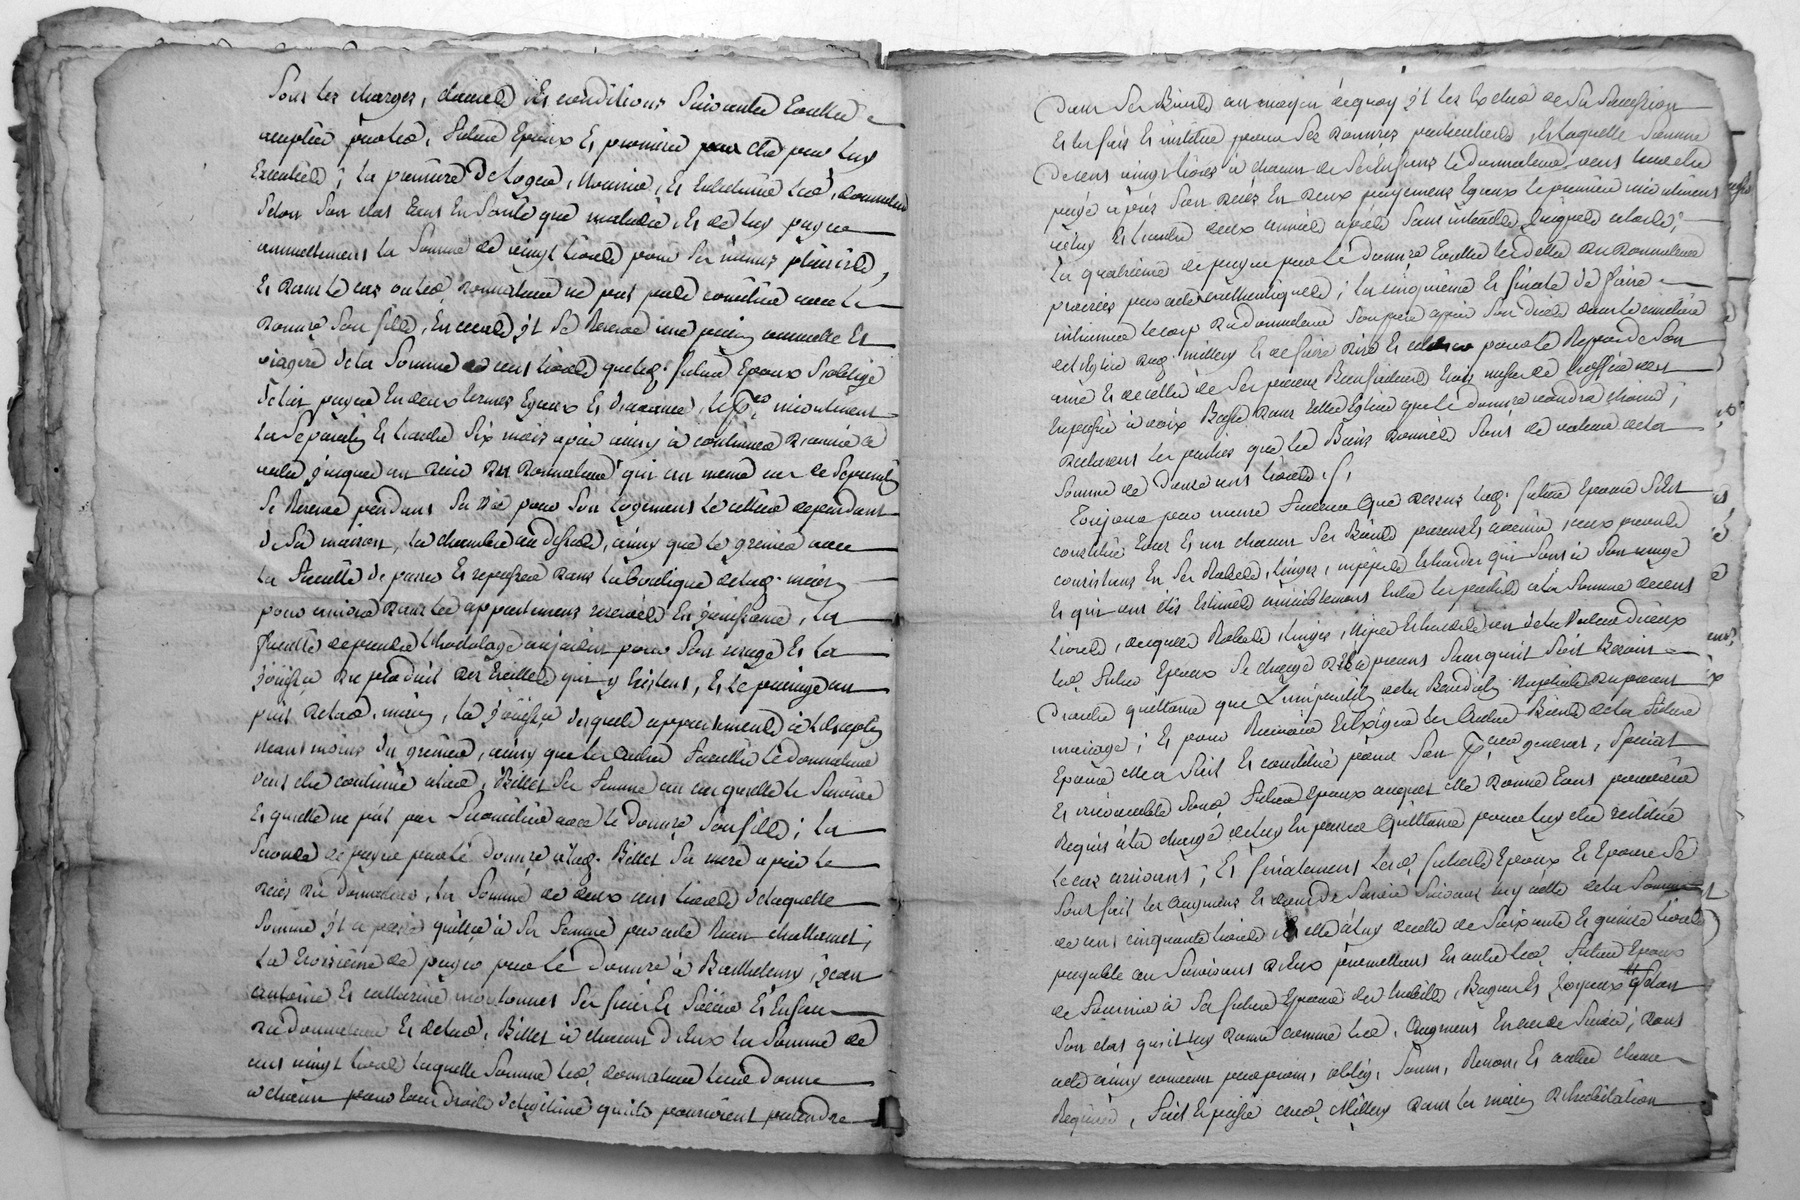 Sous les charges, clauses et conditions suivantes toutes
acceptées par led. futur Epoux Et promises par lui
Executées ; la première de loger, nourrir, Et Entretenir led. donnateur
selon son état tant En santé que maladie, Et de luy payer
annuellement la somme de vingt livres pour ses menus plaisirs,
Et dans le cas ou led. donnateur ne put pas compatir avec le
donné son fils, En ce cas jl se Reserve une pension annuelle Et
viagere de la somme de cent livres que led. futur Epoux s'oblige
de luy payer En deux termes Egaux Et d'avance, le p.er incontinent
la séparation Et l'autre six mois après ainsy à continuer d'année à
autre jusques au décés du donnateur qui au meme cas de separation
se Reserve pendant sa vie pour son logement le cellier dependant
de sa maison, la chambre au dessus, ainsy que le grenier avec
la faculté de passer Et repasser dans la boutique de lad. maison
pour arriver dans les appartements reservés En jouissance, la
faculté de prendre l'hortolage au jardin pour son usage Et la
jouissance du produit des treilles qui y Existent, Et le puisage au
puit de lad. maison, la jouissance desquels appartements à l'exception
neanmoins du grenier, ainsy que les autres facultés le donnateur
veut etre continué à lad. Billet sa femme au cas quelle le survive
Et quelle ne put pas compatir avec le donné son fils ; la
seconde de payer par le donné à lad. Billet sa mere après le
décés du donnateur, la somme de deux cent livres de laquelle
somme jl a passé quittance à sa femme par acte Reçu
la troisième de payer par le donné à Barthelemy, jean
antoine Et catharine ses frères Et soeur Et Enfans
du donnateur Et de lad. Billet à chacun d'Eux la somme de
cent vingt livres laquelle somme led. donnateur leur donne
à chacun pour tous droits de legitime qu'ils pourroient pretendre
dans ses Biens au moyen de quoy jl les Exclus de sa succession
Et les fait Et institue pour ses heritiers particuliers, Et laquelle somme
de cent vingt livres à chacun de ses Enfans le donnateur veut leur etre
payé après son décés En deux payements Egaux le premier incontinent
iceluy Et l'autre deux années après sans intérêts jusques alors ;
la quatrième de payer par le donné toutes les dettes du donnateur
prouvées par actes authentiques ; la cinquième Et finale de faire
inhumer le corps du donnateur son pere après son décés dans le cimetière
de l'Eglise dud. millery Et de faire dire Et celebrer pour le Repos de son
ame Et de celles de ses parens Bienfaiteurs trois messes de l'office des
trepassés à voix Basse dans telle Eglise que le donné voudra choisir ;
declarent les parties que les Biens donnés sont de valeur de la
somme de douze cent livres./.
Toujours par meme faveur Que dessus lad. future Epouse s'est
constitué tous Et un chacun ses Biens presents Et avenir, iceux presents
consistant En ses Robes, linges, nippes Et hardes qui sont à son usage
Et qui ont étés Estimés amiablement Entre les parties à la somme de cent
livres, desquels Robes, linges, nipes Et hardes ou de la Valeur d'iceux
led. futur Epoux se charge dès à présent sans qu'il soit Besoin
d'autre quittance que l'impartition de la Benediction Nuptiale du present
mariage ; Et pour Recevoir Et Exiger les autres Biens de la future
Epouse elle a fait Et constitué pour son p.reur general, special
Et irrevocable sond. futur Epoux auquel elle donne tout pouvoir
Requis à la charge de luy En passer Quittance pour luy etre restitué
le cas arrivant ; Et finalement lesd. futurs Epoux Et Epouse se
sont fait les augment Et gains de survie suivants luy à elle de la somme
de cent cinquante livres Et elle à luy de celle de soixante Et quinze livres
payable au survivant d'Eux promettant En outre led. futur Epoux
de fournir à sa future Epouse des habits, Bagues Et joyaux selon
son état qu'il luy donne comme led. augment En cas de survie ; dont
acte ainsy convenu par promi, oblig, soum, Renon, Et autres clauses
Requises, fait Et passé aud. Millery dans la maison d'habitation